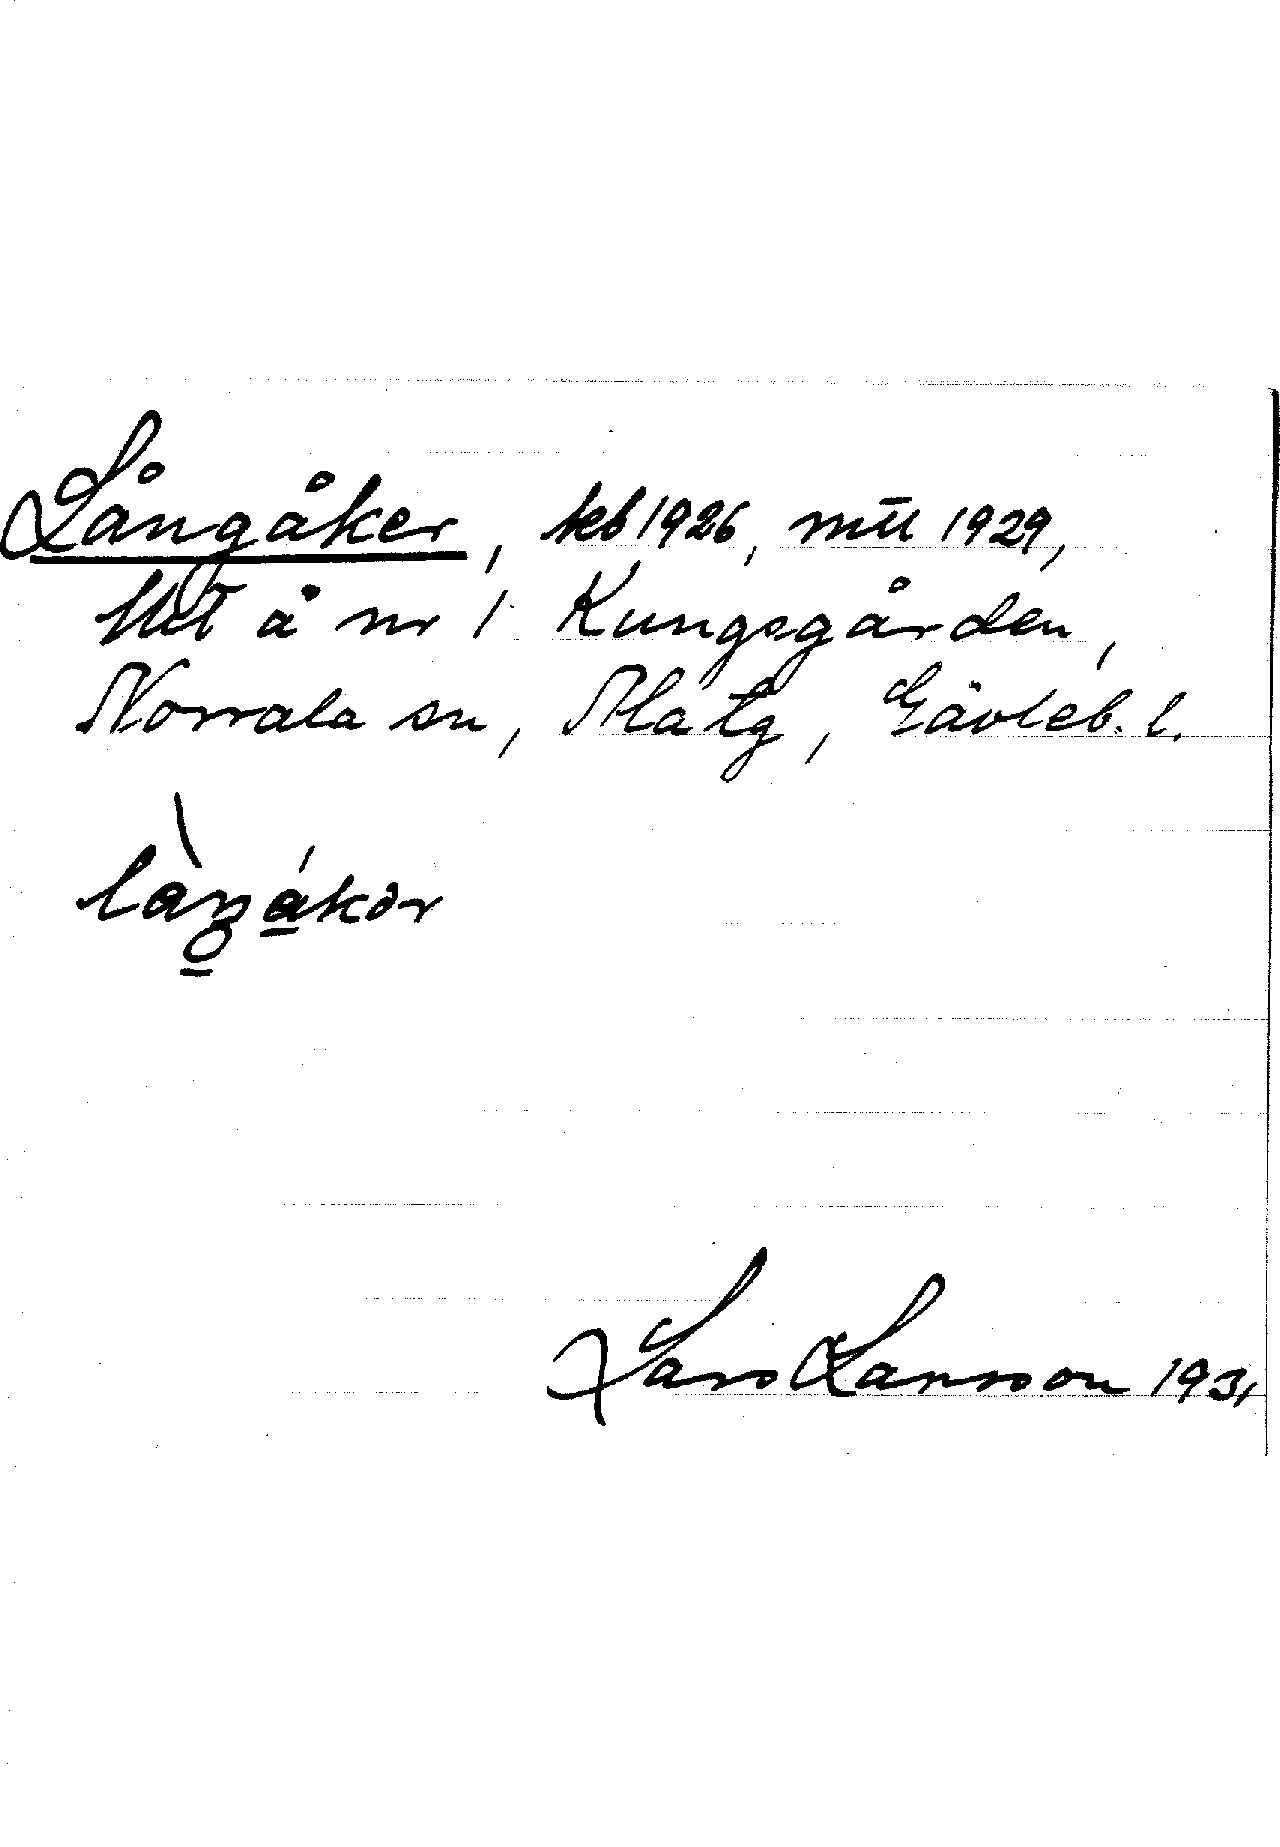 Långåker, keb 1926, mtl 1929,
Utj å nr 1 Kungsgården,
Norrala sn, Ala tg, Gävleb. l.
làŋákər
Lars Larsson 1931